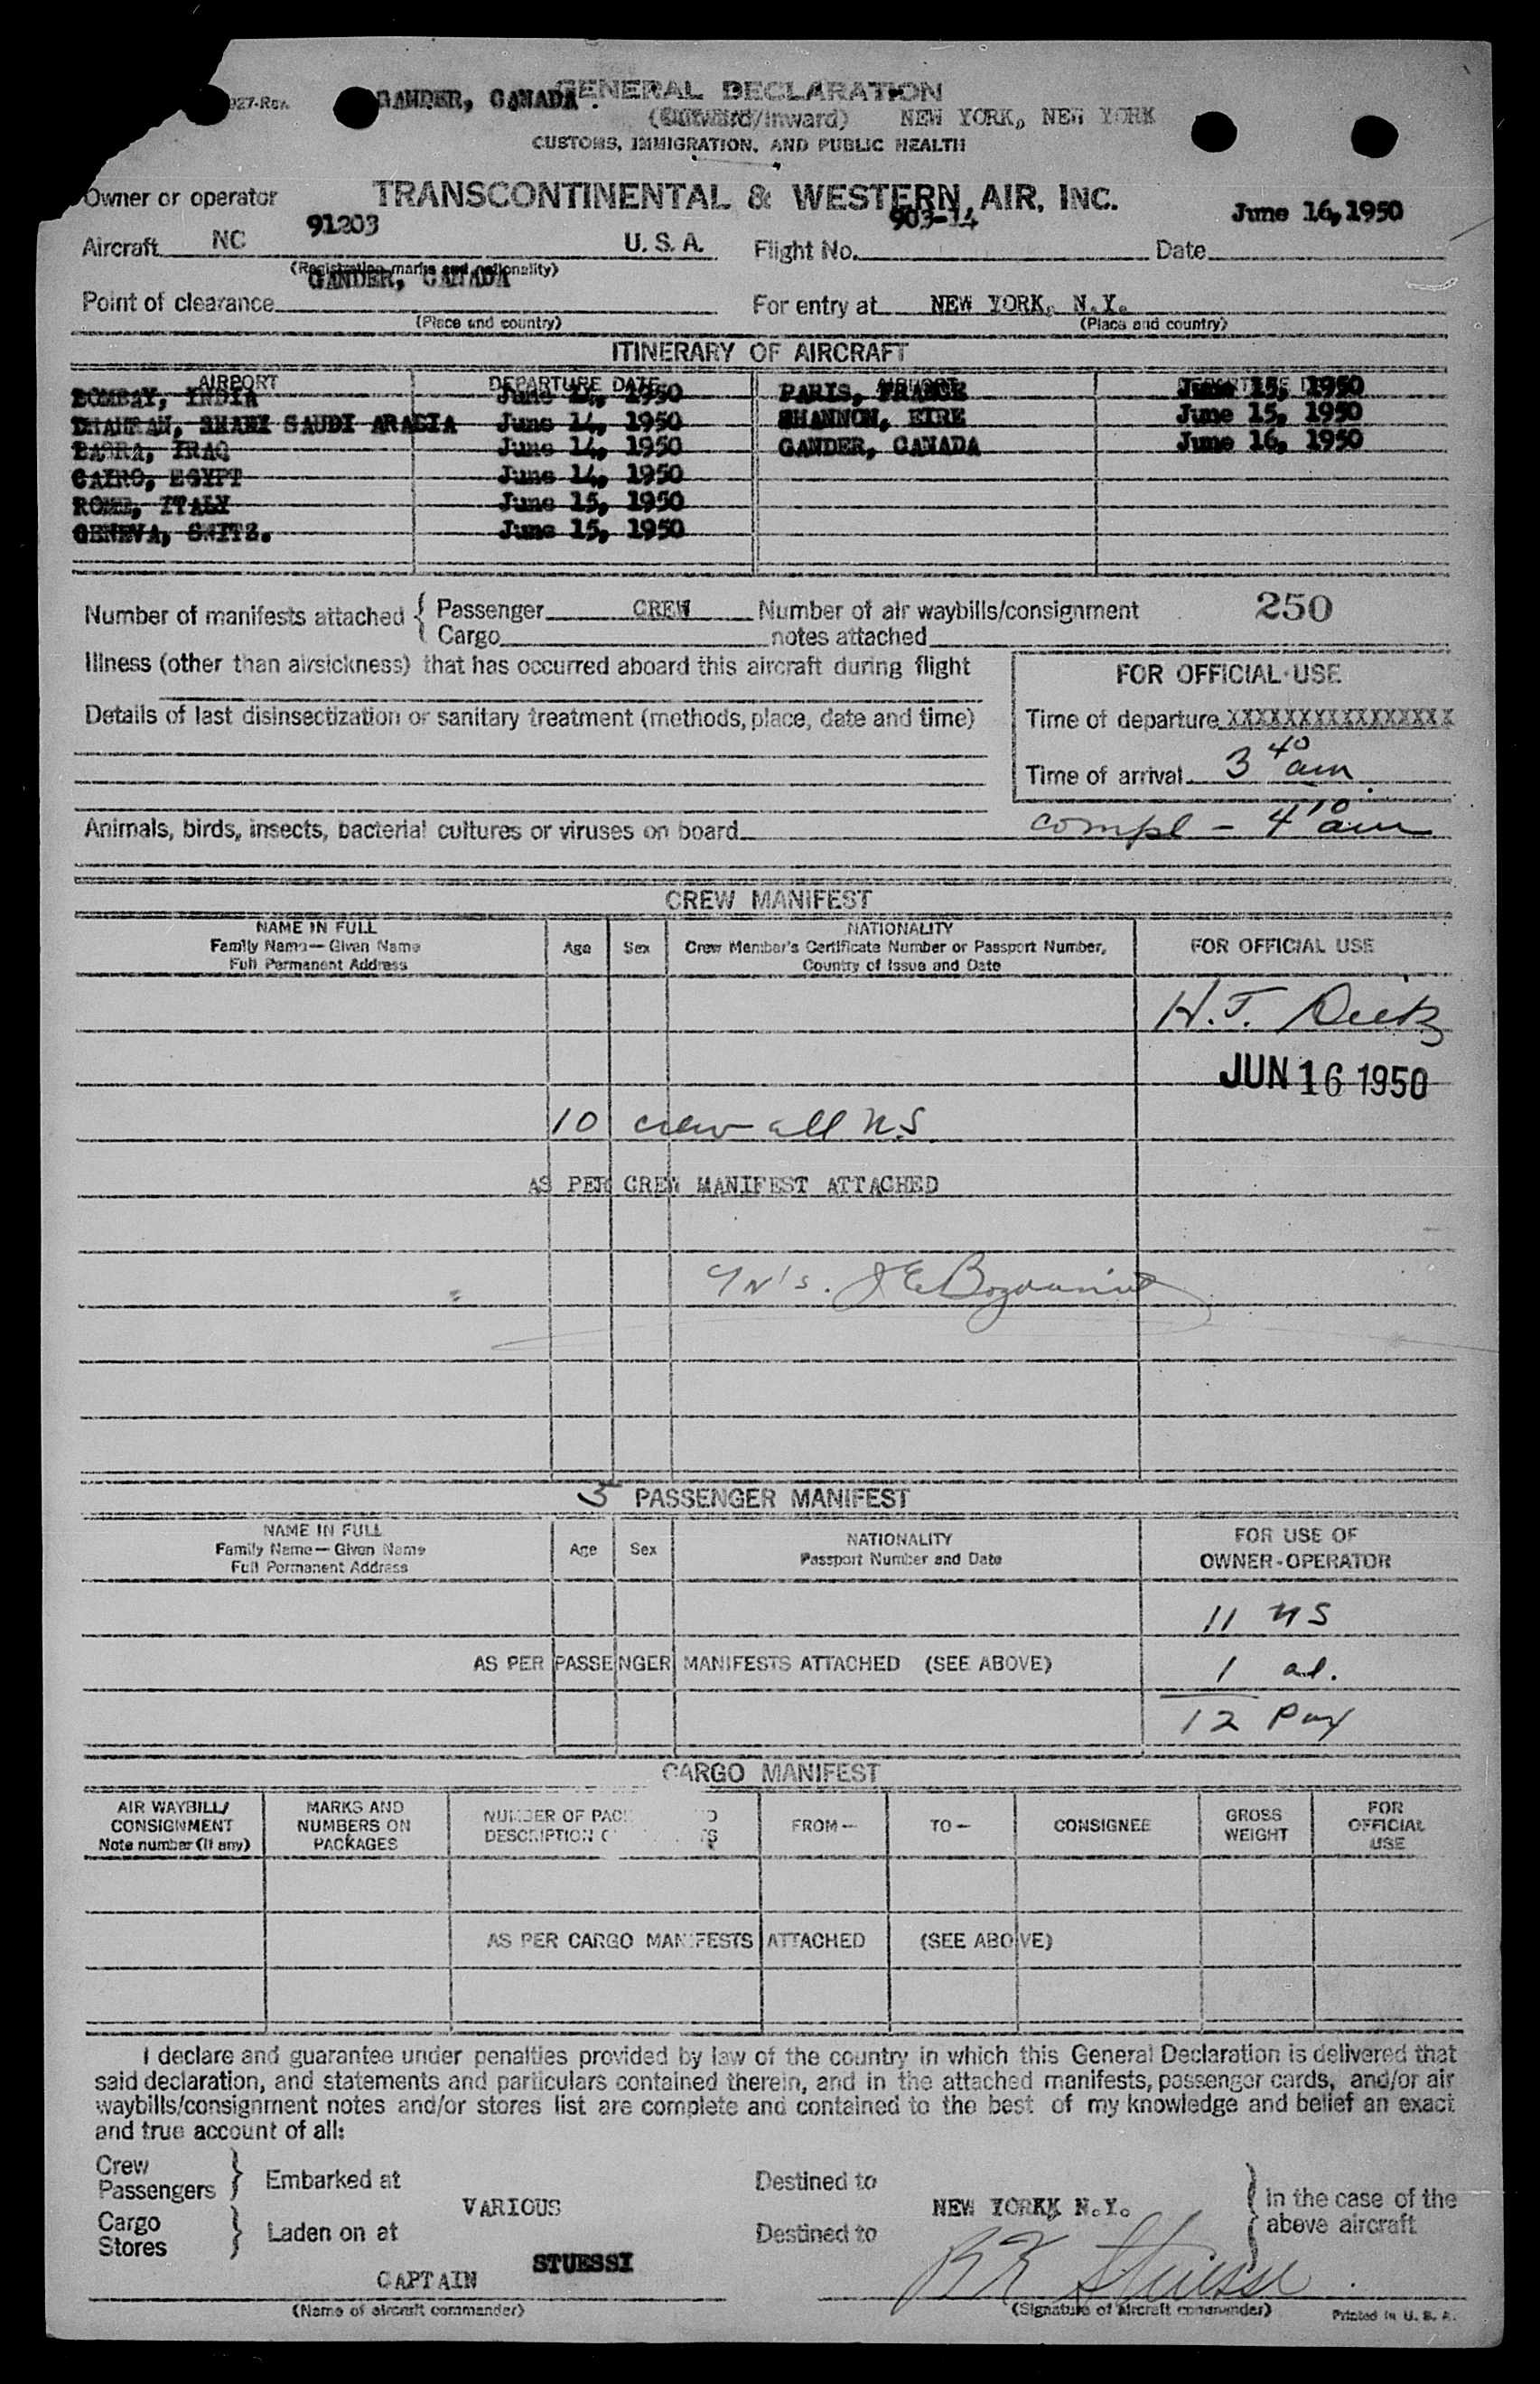 GANDER, CANADA. GENERAL DECLARATION
(Outward/Inward) NEW YORK, NEW YORK
CUSTOMS, IMMIGRATION, AND PUBLIC HEALTH
Owner or operator TRANSCONTINENTAL & WESTERN AIR, INC.
Aircraft NC 91203 U. S. A. Flight No. 903-14 Date June 16, 1950
(Registration marks and nationality)
Point of clearance GANDER, CANADA For entry at NEW YORK, N.Y.
(Place and country) (Place and country)
ITINERARY OF AIRCRAFT
AIRPORT DEPARTURE DATE AIRPORT DEPARTURE DATE
BOMBAY, INDIA June 14, 1950 PARIS, FRANCE June 15, 1950
DHAHRAN, SAUDI ARABIA June 14, 1950 SHANNON, EIRE June 15, 1950
BASRA, IRAQ June 14, 1950 GANDER, CANADA June 16, 1950
CAIRO, EGYPT June 14, 1950
ROME, ITALY June 15, 1950
GENEVA, SWITZ. June 15, 1950
Number of manifests attached { Passenger CREW Number of air waybills/consignment 250
Cargo notes attached
Illness (other than airsickness) that has occurred aboard this aircraft during flight
FOR OFFICIAL USE
Details of last disinsectization or sanitary treatment (methods, place, date and time)
Time of departure XXXXXXXXXXXXXXXX
Time of arrival 3 40 am
Animals, birds, insects, bacterial cultures or viruses on board compl - 4 10 am
CREW MANIFEST
NAME IN FULL NATIONALITY
Family Name—Given Name Age Sex Crew Member's Certificate Number or Passport Number, FOR OFFICIAL USE
Full Permanent Address Country of Issue and Date
H.J.
JUN 16 1950
10 crew all U.S
AS PER CREW MANIFEST ATTACHED
3 PASSENGER MANIFEST
NAME IN FULL NATIONALITY FOR USE OF
Family Name—Given Name Age Sex Passport Number and Date OWNER-OPERATOR
Full Permanent Address
11 US
AS PER PASSENGER MANIFESTS ATTACHED (SEE ABOVE) 1 al.
12 Pax
CARGO MANIFEST
AIR WAYBILL/ MARKS AND NUMBER OF FOR
CONSIGNMENT NUMBERS ON DESCRIPTION FROM— TO— CONSIGNEE GROSS OFFICIAL
Note number (if any) PACKAGES WEIGHT USE
AS PER CARGO MANIFESTS ATTACHED (SEE ABOVE)
I declare and guarantee under penalties provided by law of the country in which this General Declaration is delivered that
said declaration, and statements and particulars contained therein, and in the attached manifests, passenger cards, and/or air
waybills/consignment notes and/or stores list are complete and contained to the best of my knowledge and belief an exact
and true account of all:
Crew
Passengers } Embarked at Destined to
VARIOUS NEW YORKK N.Y. } In the case of the
Cargo above aircraft
Stores } Laden on at Destined to
CAPTAIN STUESSI
(Name of aircraft commander) (Signature of aircraft commander) Printed in U. S. A.